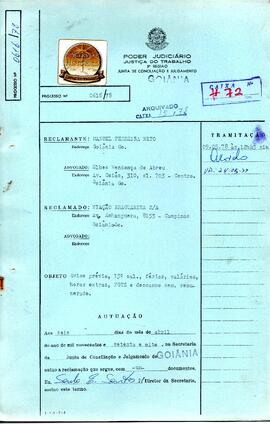 PODER JUDICIÁRIO
JUSTIÇA DO TRABALHO
3ª REGIÃO
JUNTA DE CONCILIAÇÃO E JULGAMENTO
GOIÂNIA
PROCESSO Nº 0616/78
PROCESSO Nº 0616/78
ARQUIVADO
CAIXA
CAIXA
# 72
RECLAMANTE: MANOEL FERREIRA NETO
Endereço Goiânia Go.
ADVOGADO: Elber Mendonça de Abreu
Endereço Av. Goiás, 310, sl. 703 - Centro.
Goiânia Go.
RECLAMADO: VIAÇÃO ARAGUARINA S/A
Av. Anhanguera, 8153 - Campinas
Endereço
ADVOGADO:
Endereço
OBJETO: Aviso prévio, 13º sal., férias, salários,
horas extras, FGTS e descanso sem. remunerado.
TRAMITAÇÃO
AUTUAÇÃO
Aos seis dias do mês de abril
do ano de mil novecentos e setenta e oito, na Secretaria
da Junta de Conciliação e Julgamento de GOIÂNIA
autuo a reclamação que segue, com documentos.
Diretor da Secretaria,
assino este termo.